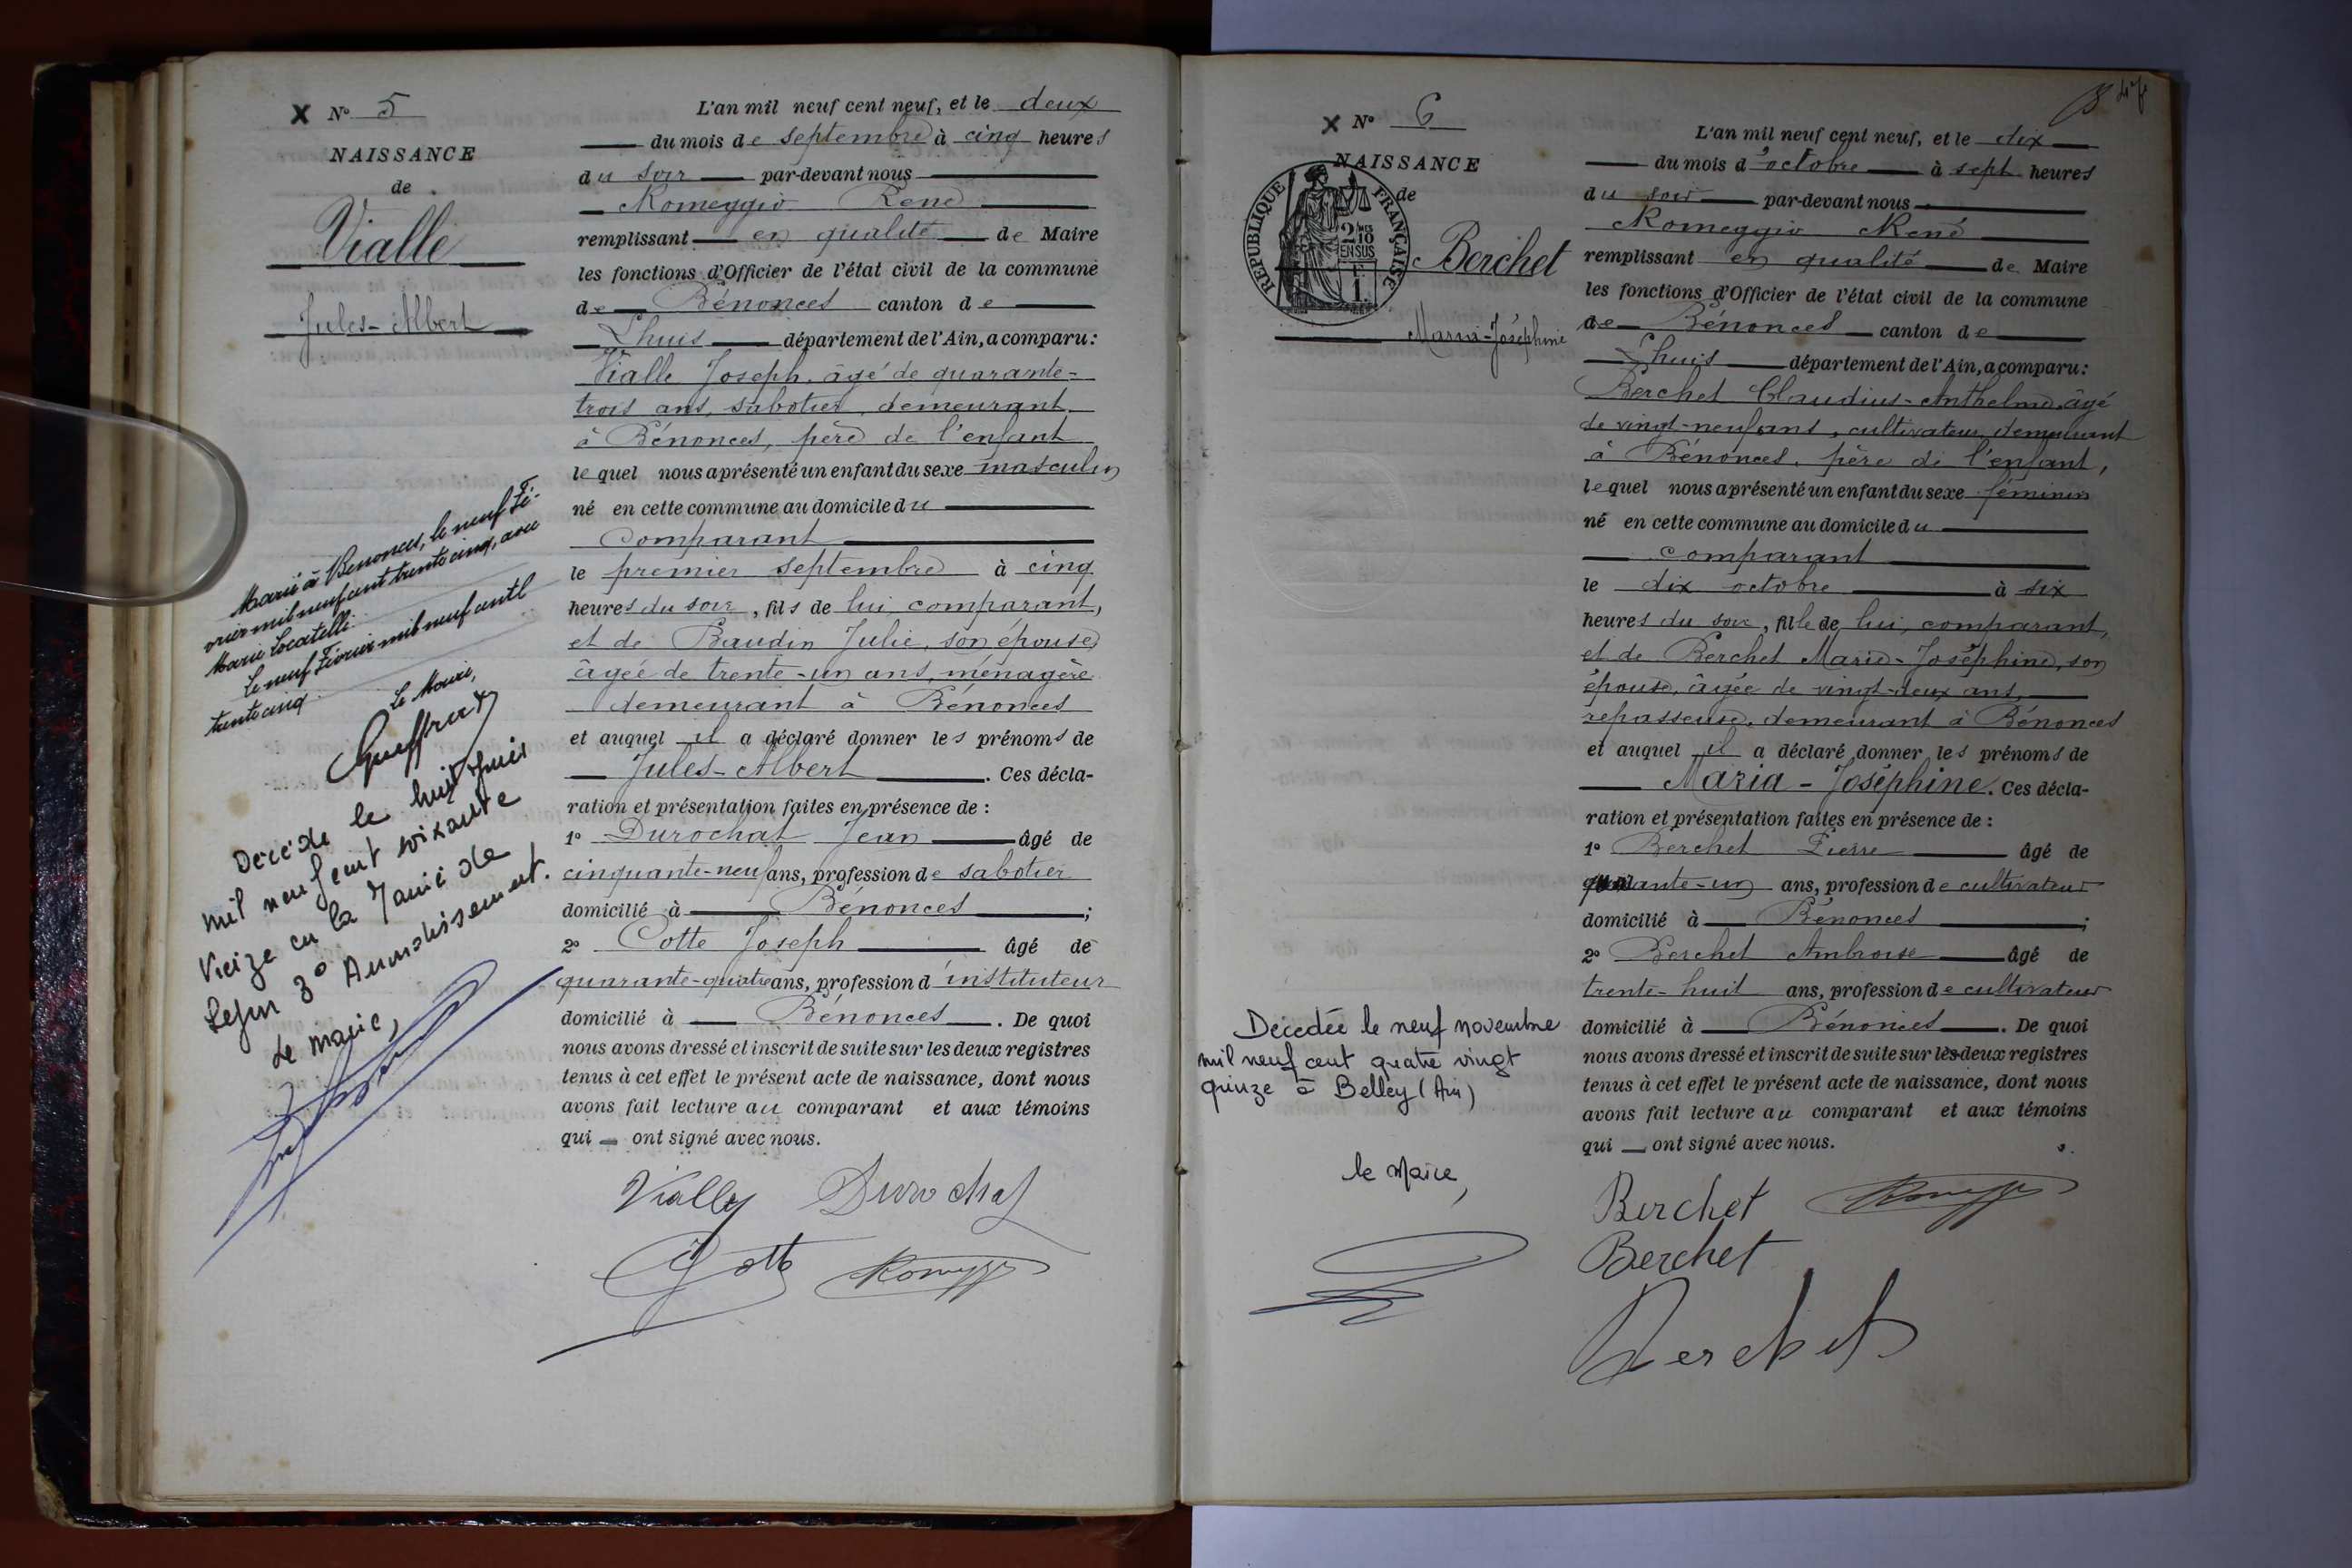 X N° 5
NAISSANCE
de
Vialle
Jules-Albert
Marié à Benonces, le neuf Fé-
vrier mil neuf cent trente cinq, avec
Marie Locatelli.
Le neuf Février mil neuf cent
trente cinq
Le Maire,
Décédé le huit
mil neuf cent soixante
treize en la Mairie de
Lyon 3° Arrondissement.
Le Maire,
L'an mil neuf cent neuf, et le deux
du mois de septembre à cinq heures
du soir par-devant nous
Romeggio René
remplissant en qualité de Maire
les fonctions d'Officier de l'état civil de la commune
de Bénonces canton de
Lhuis département de l'Ain, a comparu:
Vialle Joseph, âgé de quarante-
trois ans, sabotier, demeurant
à Bénonces, père de l'enfant
lequel nous a présenté un enfant du sexe masculin
né en cette commune au domicile du
comparant
le premier septembre à cinq
heures du soir, fils de lui comparant,
et de Baudin Julie, son épouse
âgée de trente-un ans, ménagère
demeurant à Bénonces
et auquel il a déclaré donner les prénoms de
Jules-Albert. Ces décla-
ration et présentation faites en présence de :
1° Durochat Jean âgé de
cinquante-neuf ans, profession de sabotier
domicilié à Bénonces ;
2° Cotte Joseph âgé de
quarante-quatre ans, profession d'instituteur
domicilié à Bénonces. De quoi
nous avons dressé et inscrit de suite sur les deux registres
tenus à cet effet le présent acte de naissance, dont nous
avons fait lecture au comparant et aux témoins
qui ont signé avec nous.
Vialle Durochat
Cotte Romeggio
47
X N° 6
NAISSANCE
de
REPUBLIQUE FRANÇAISE
2/10
EN SUS
1
Berchet
Maria-Joséphine
Décédée le neuf novembre
mil neuf cent quatre vingt
quinze à Belley (Ain)
le Maire,
L'an mil neuf cent neuf, et le dix
du mois d'octobre à sept heures
du soir par-devant nous
Romeggio René
remplissant en qualité de Maire
les fonctions d'Officier de l'état civil de la commune
de Bénonces canton de
Lhuis département de l'Ain, a comparu:
Berchet Claudius-Anthelme, âgé
de vingt-neuf ans, cultivateur, demeurant
à Bénonces, père de l'enfant,
lequel nous a présenté un enfant du sexe féminin
né en cette commune au domicile du
comparant
le dix octobre à six
heures du soir, fille de lui, comparant,
et de Berchet Marie-Joséphine, son
épouse, âgée de vingt-deux ans,
repasseuse, demeurant à Bénonces
et auquel il a déclaré donner les prénoms de
Maria-Joséphine. Ces décla-
ration et présentation faites en présence de :
1° Berchet Pierre âgé de
quarante-un ans, profession de cultivateur
domicilié à Bénonces ;
2° Berchet Ambroise âgé de
trente-huit ans, profession de cultivateur
domicilié à Bénonces. De quoi
nous avons dressé et inscrit de suite sur les deux registres
tenus à cet effet le présent acte de naissance, dont nous
avons fait lecture au comparant et aux témoins
qui ont signé avec nous.
Berchet Romeggio
Berchet
Berchet